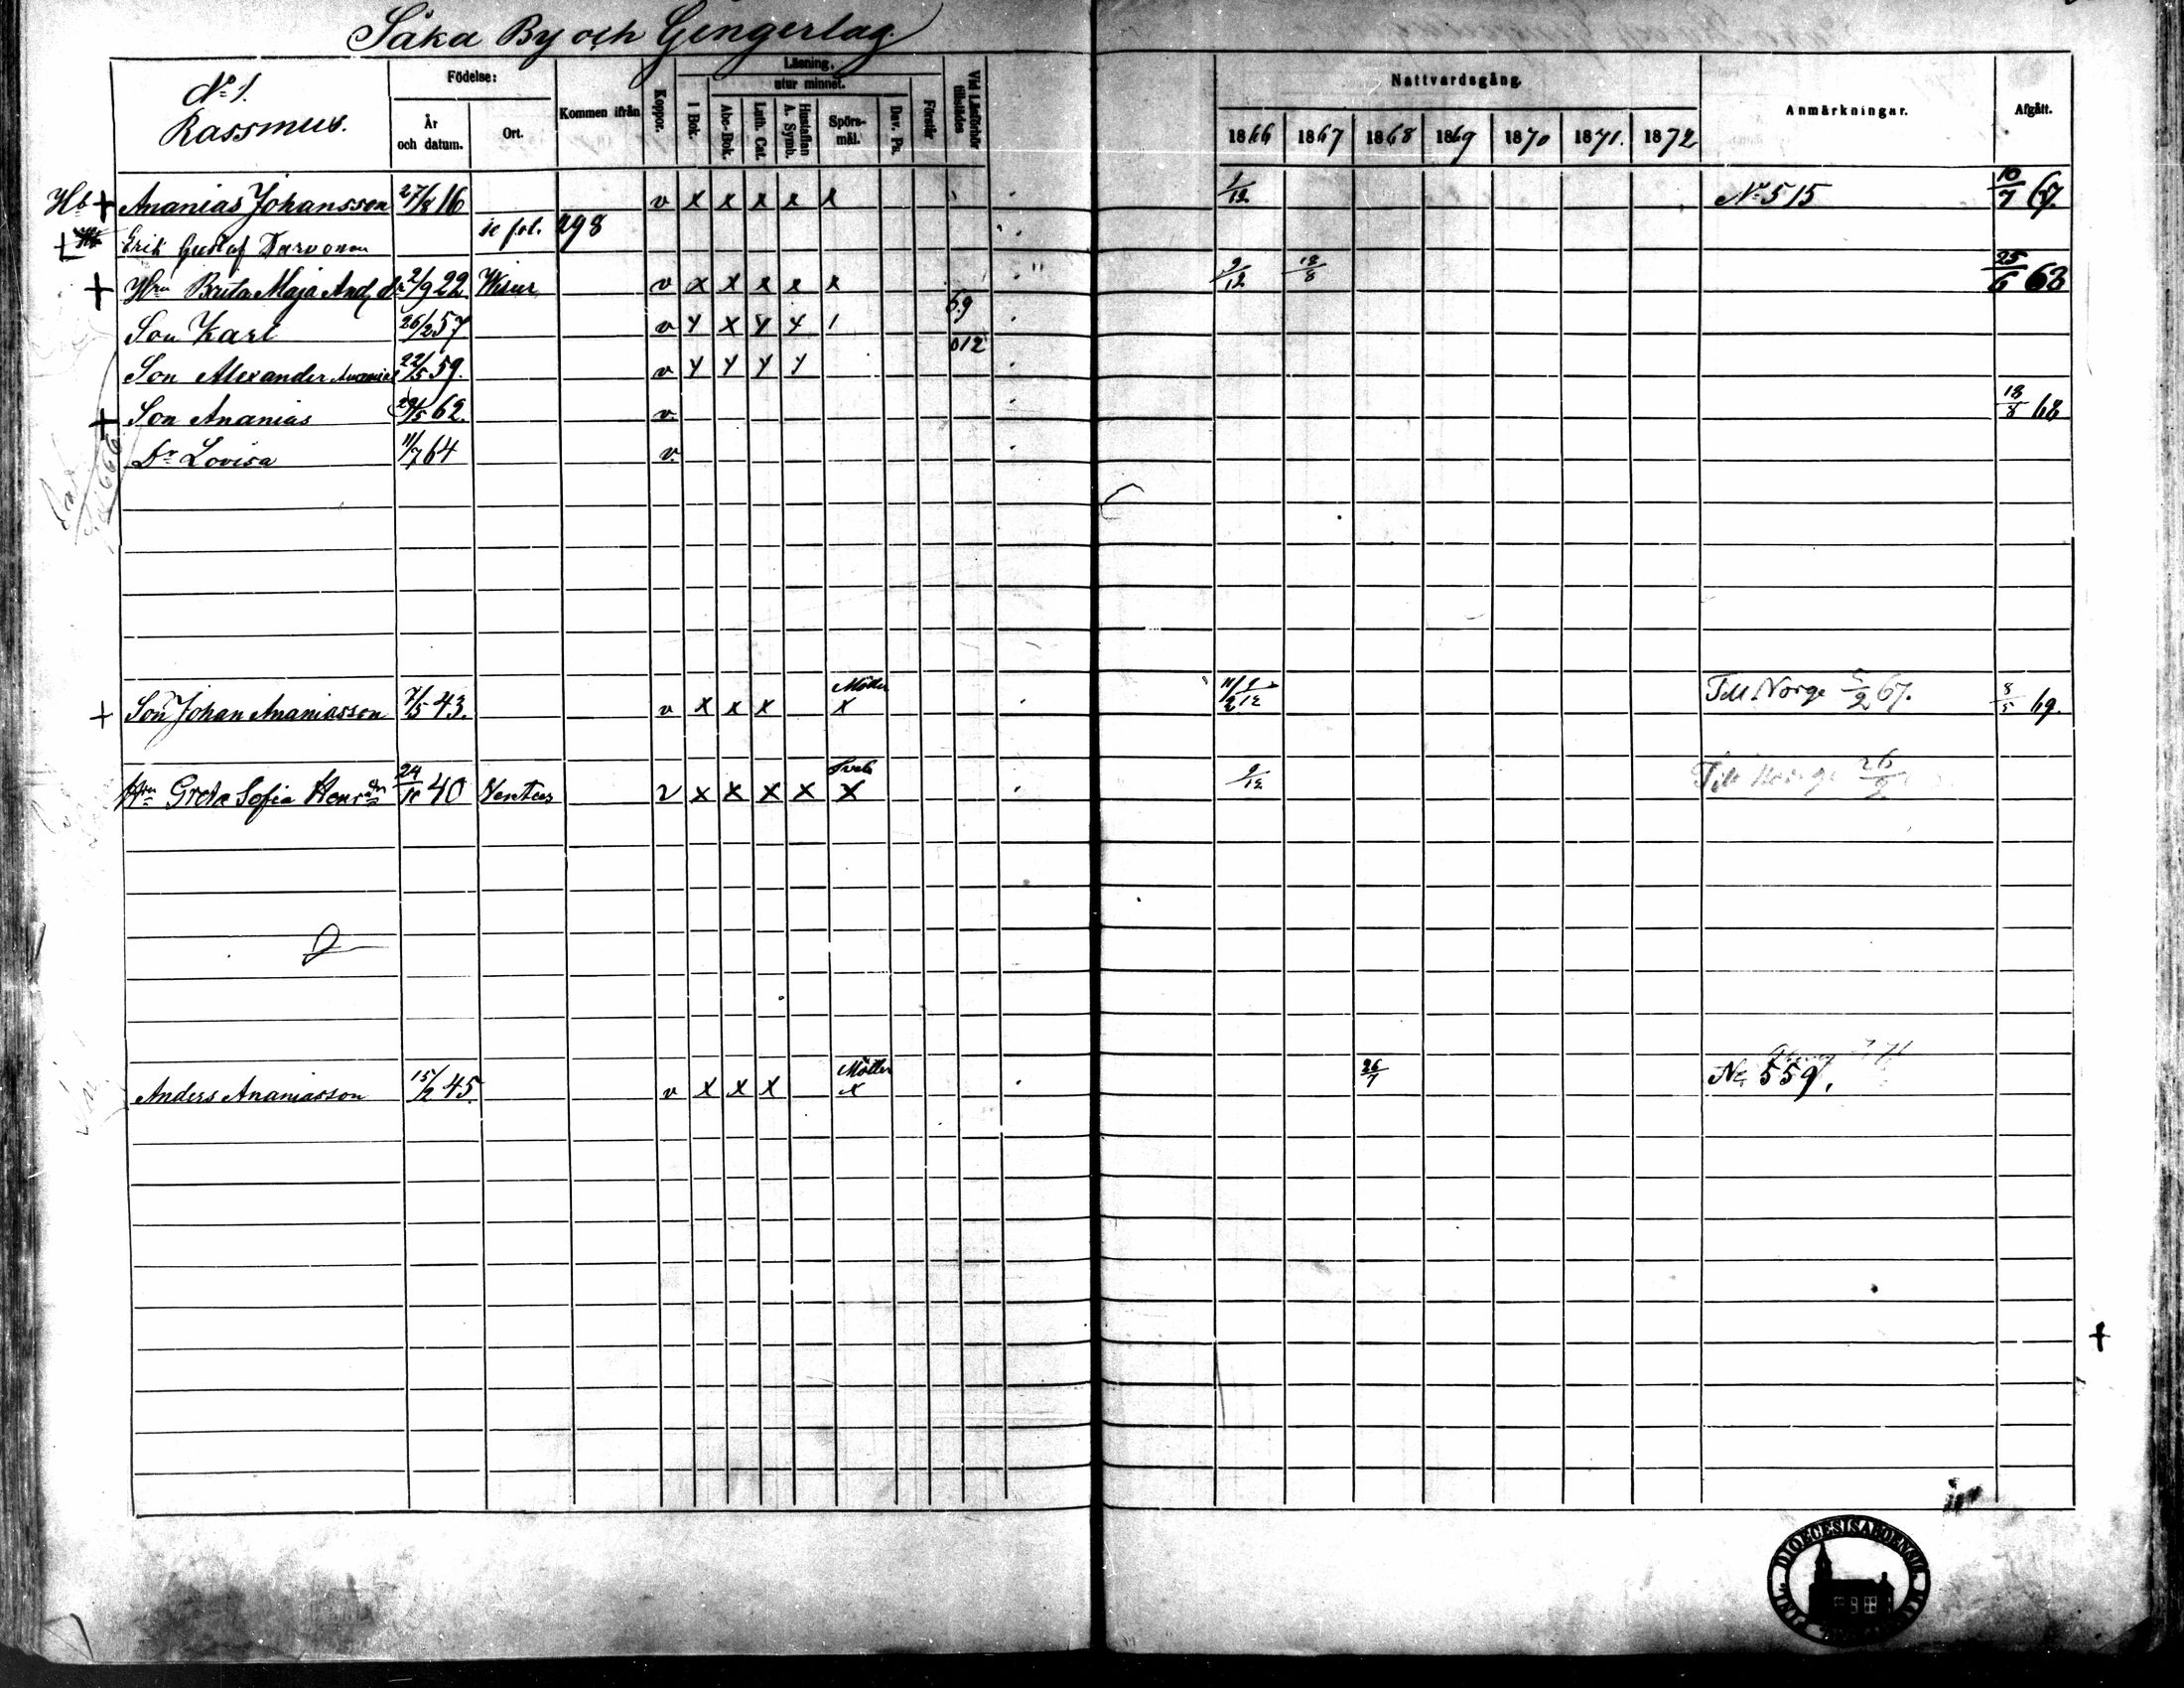 Såka By och Gingerlag.
No 1.
Rassmus.
Födelse:
År
och datum.
Ort.
Kommen ifrån
Koppor.
Läsning,
utur minnet.
I Bok.
Abc-Bok.
Luth. Cat.
Hustaflan
A. Symb.
Spörs-
mål.
Dav. Ps.
Förstår
Vid Läsförhör
tillstädes
Nattvardsgång.
1866 1867 1868 1869 1870 1871. 1872
Anmärkningar.
Afgått.
Hb + Ananias Johansson 27/8 16 v x x x x x 1/12 No 515 10/7 67.
Erik Gustaf se fol. 298
+ Hru Brita Maja And. dr 2/9 22 v x x x x x 9/12 18/8 25/6 68
Son Karl 26/2 57 v 69
Son Alexander 22/5 59. v 012
+ Son Ananias 29/5 62. v. 18/8 68
Dr Lovisa 11/7 64 v.
+ Son Johan Ananiasson 7/5 43. v x x x Möller x Till Norge 5/2 67. 8/5 69.
Hru Greta Sofia Henr. dr 24/10 40 v x x x x x 9/12 Till Norge 26/2
Anders Ananiasson 15/2 45. v x x x Möller x 26/7 No 559.
DIOECESIS ABOENSIS